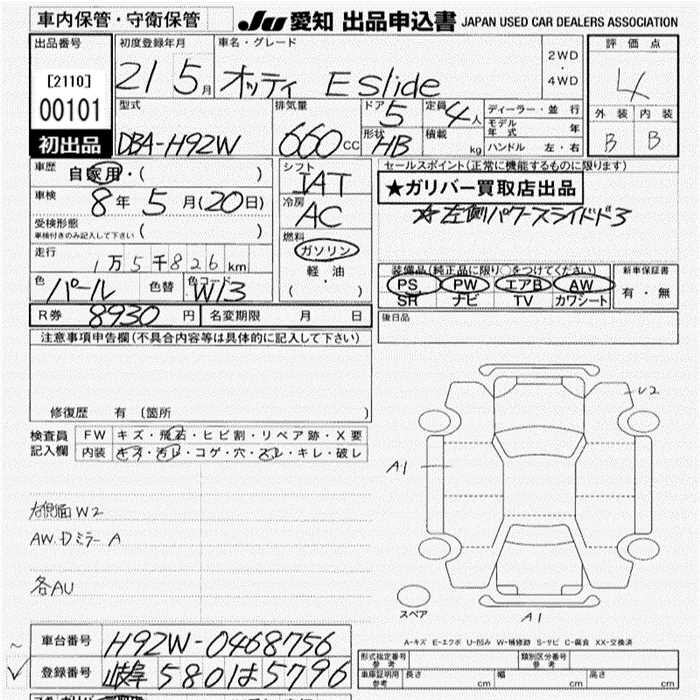 車内保管・守衛保管
JU 愛知 出品申込書 JAPAN USED CAR DEALERS ASSOCIATION
出品番号
[2110]
00101
初出品
初度登録年月
21 5月
車名・グレード
オッティ E Slide
2WD
・
4WD
評価点
4
外装 内装
B B
型式
DBA-H92W
排気量
660cc
ドア 5
形状 HB
定員 4人
積載 kg
ディーラー・並行
モデル年式 年
ハンドル 左・右
車歴 自家用・( )
車検 8年5月(20日)
受検形態
車検付きのみ記入して下さい ( )
走行
1万5千826km
色 パール 色替 色コード W13
シフト
IAT
冷房
AC
燃料
ガソリン
軽・油
( )
セールスポイント(正常に機能するものに限ります)
★ガリバー買取店出品
☆左側パワースライドドア
装備品(純正品に限り○をつけてください)
PS PW エアB AW
SR ナビ TV カワシート
新車保証書
有・無
R券 8930円 名変期限 月 日
後日品
注意事項申告欄(不具合内容等は具体的に記入して下さい)
修復歴 有 〔箇所 〕
検査員記入欄
FW キズ・飛石・ヒビ割・リペア跡・X要
内装 キズ・汚レ・コゲ・穴・スレ・キレ・破レ
右側面W2
AW.Dミラー A
各AU
U2
A1
スペア
A1
A-キズ E-エクボ U-凹み W-補修跡 S-サビ C-腐食 XX-交換済
車台番号 H92W-0468756
登録番号 岐阜580は5796
形式指定番号 参考 類別区分番号 参考
車庫証明用 参考 長さ cm 幅 cm 高さ cm